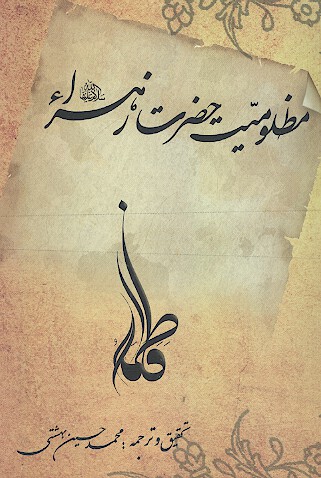 مظلومیّت حضرت زهراء
سلام الله علیها
فاطمه
تحقیق و ترجمه: محمد حسین بهشتی